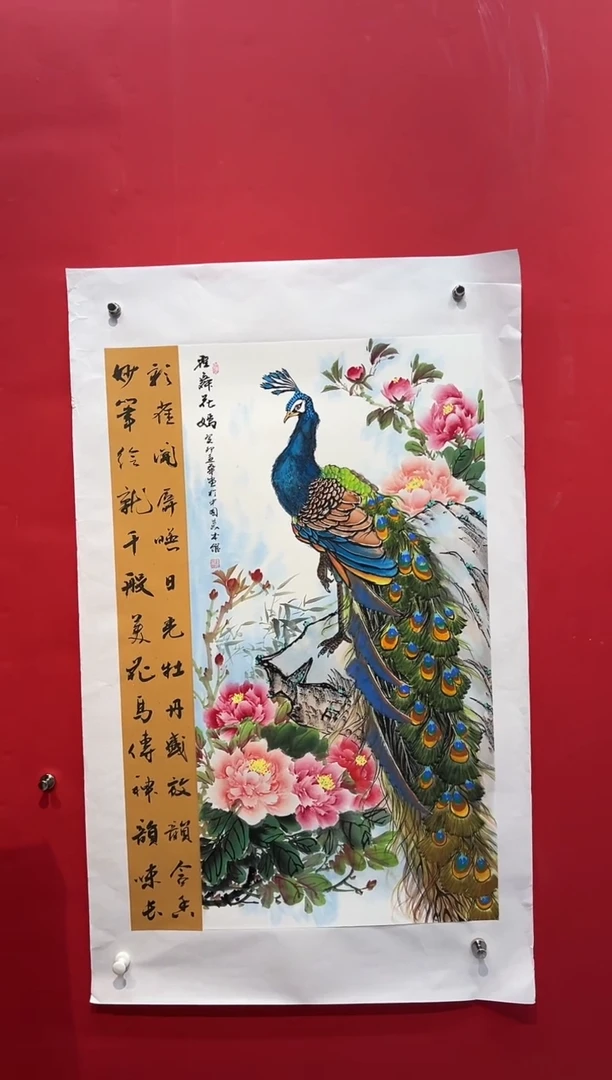 彩雀開屏曬日光牡丹盛放韻含香
妙筆繪就千般美花鳥傳神韻味長
雀舞花嫣